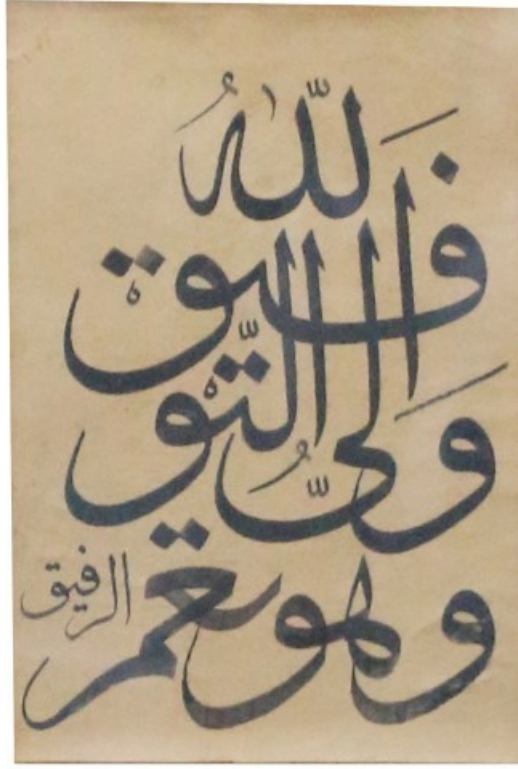 اَللّٰهُ
وَلىُّ التّوْفيقْ
وهو نعم الرفيق